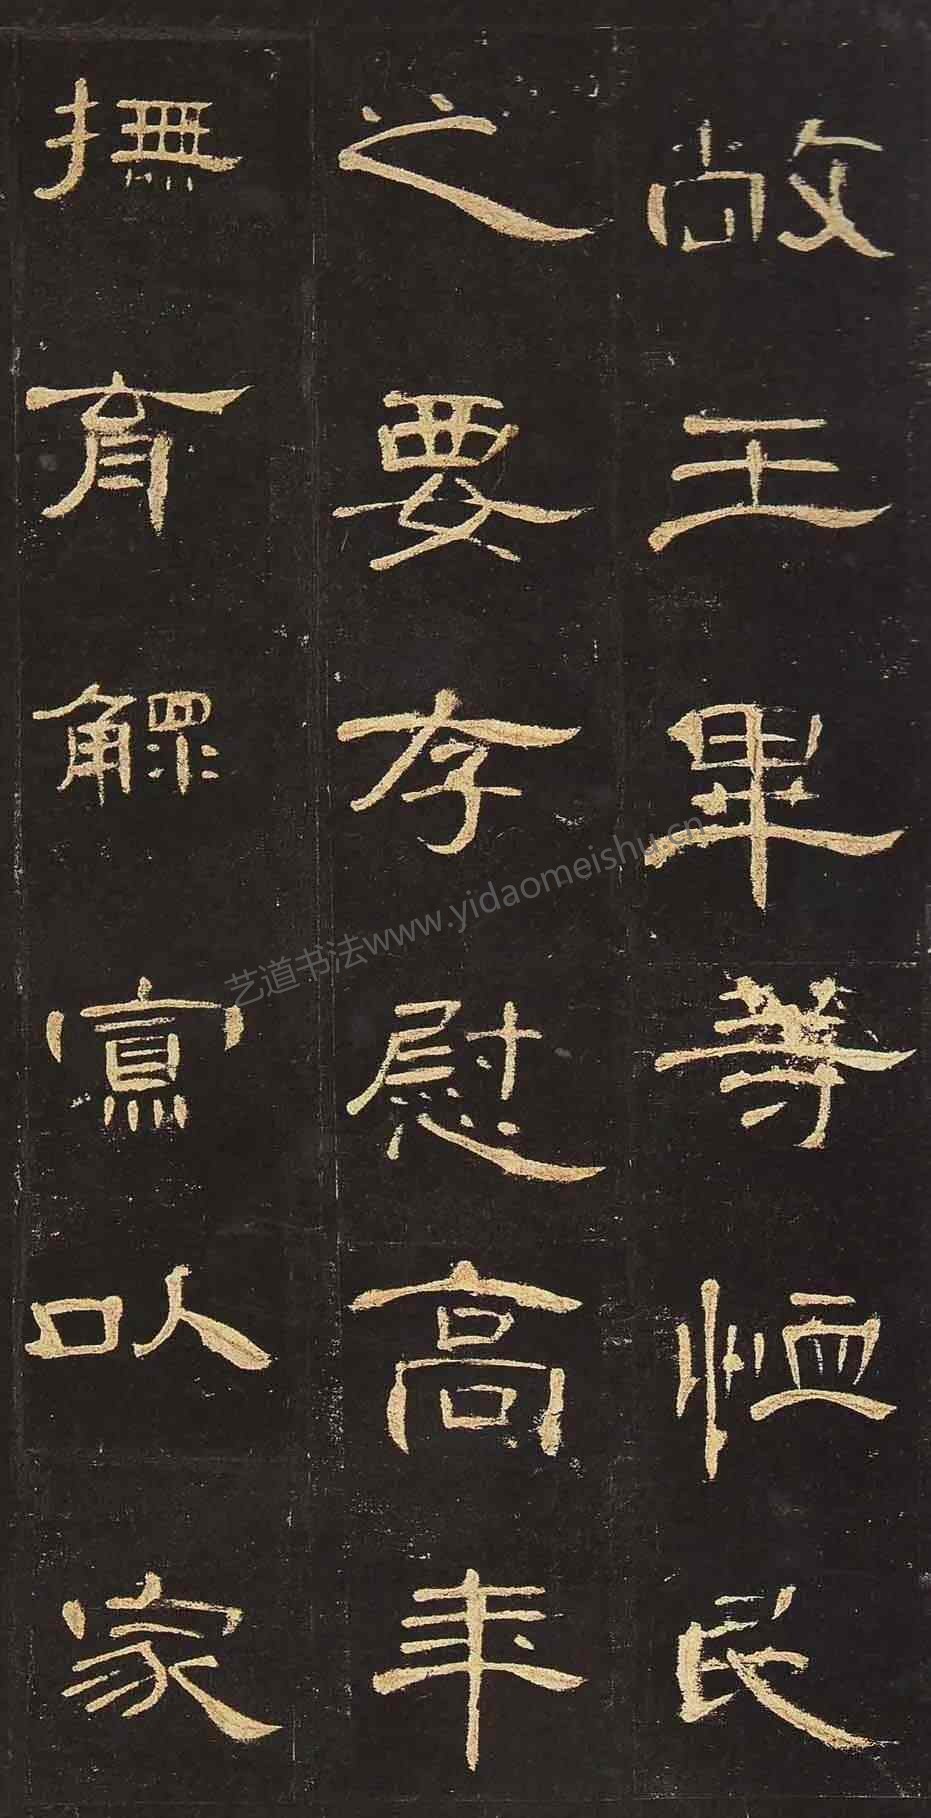 敞王畢等恤民
之要存慰高年
撫育鰥寡以家
艺道书法www.yidaomeishu.cn